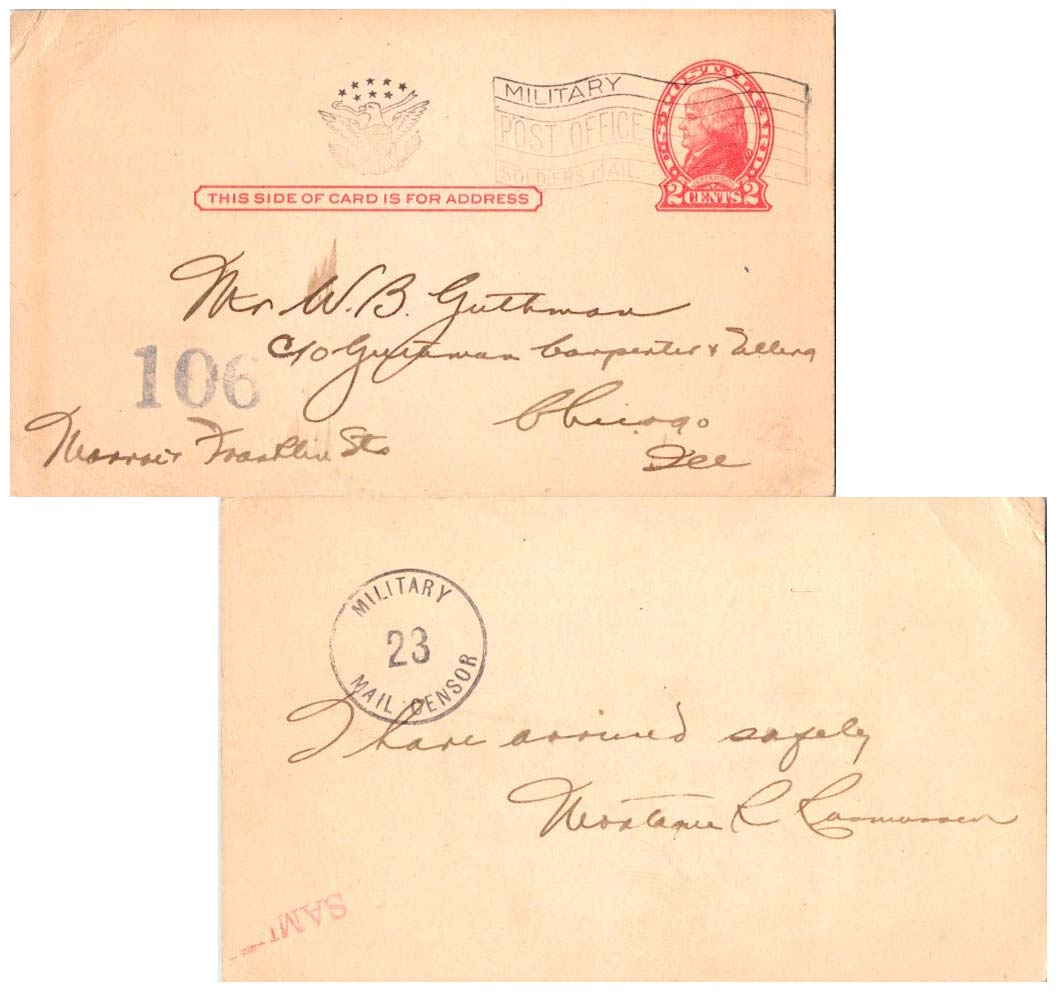 MILITARY
POST OFFICE
SOLDIERS MAIL
JEFFERSON
2 CENTS 2
THIS SIDE OF CARD IS FOR ADDRESS
Mr W. B. Guthman
c/o Guthman Carpenter & Telling
106
Chicago
Franklin Sts
Ill
MILITARY
23
MAIL CENSOR
I have arrived safely
Montague R Rasmussen